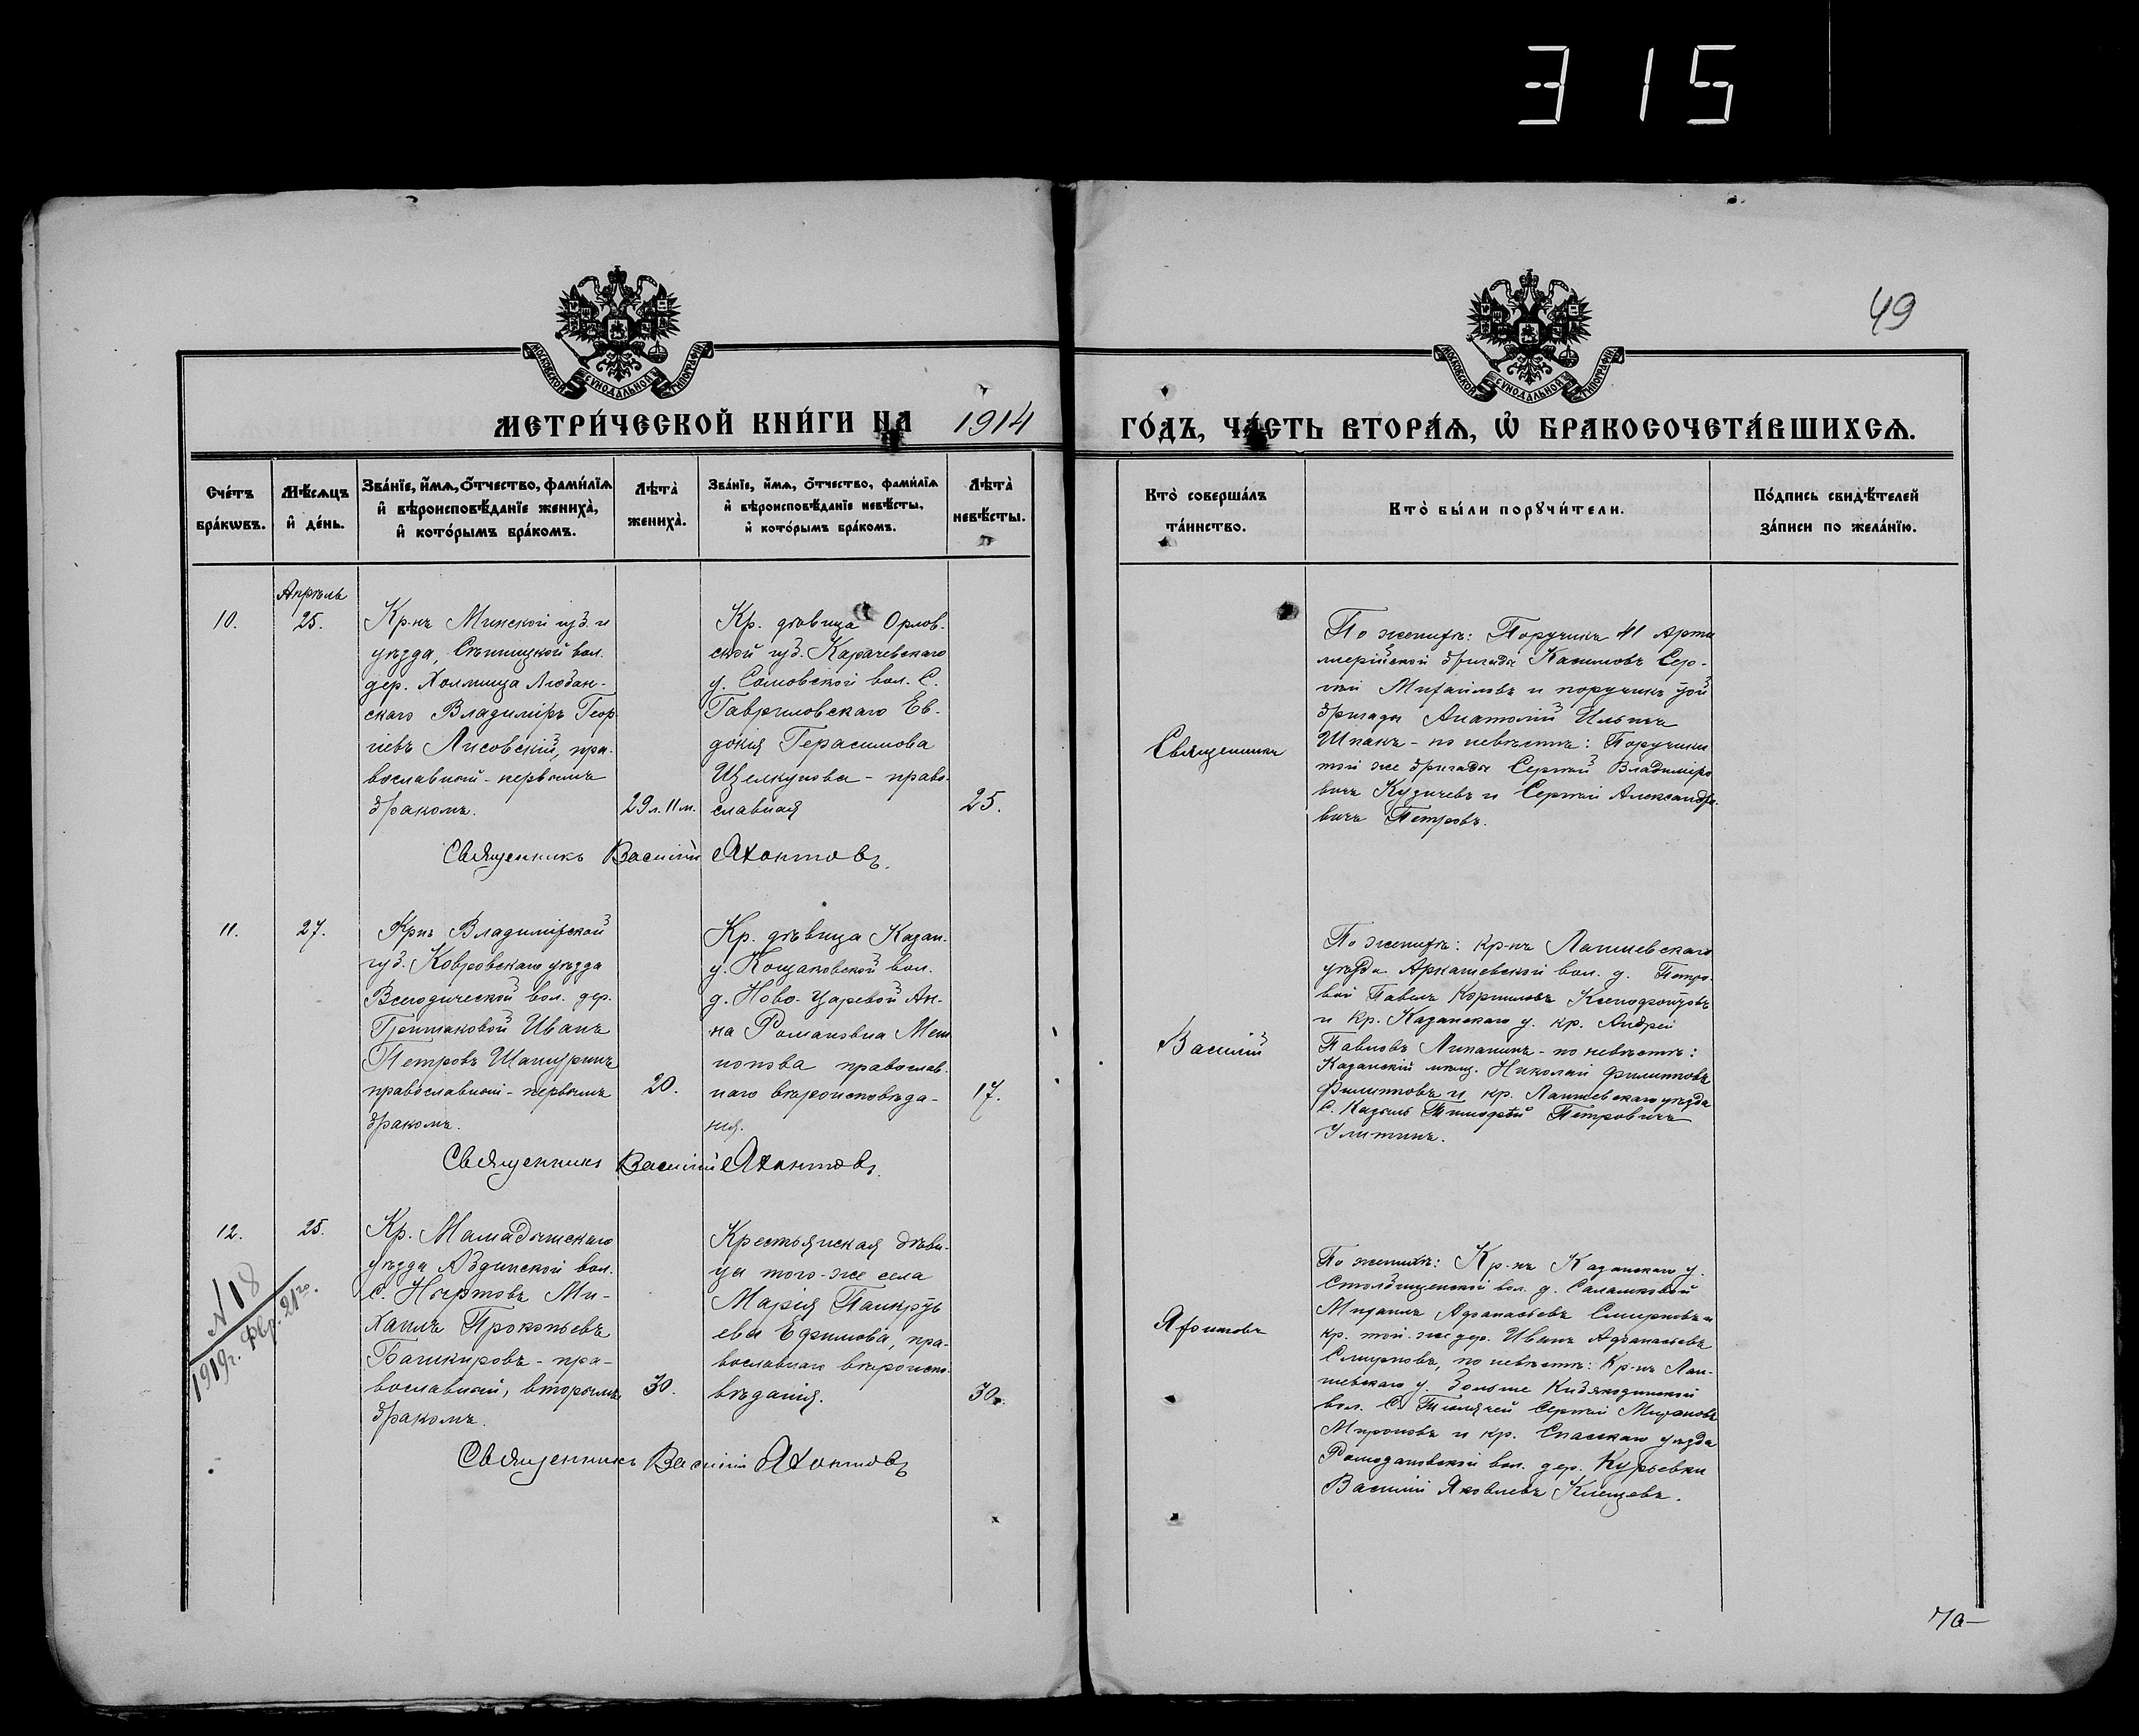 315
49
МОСКОВСКОЙ СѴНОДАЛЬНОЙ ТИПОГРАФІИ
МОСКОВСКОЙ СѴНОДАЛЬНОЙ ТИПОГРАФІИ
МЕТРИ́ЧЕСКОЙ КНИ́ГИ НА 1914
ГО́ДЪ, ЧА́СТЬ ВТОРА́Ѧ, Ѿ БРАКОСОЧЕТА́ВШИХСѦ.
Сче́тъ бра́кѡвъ.
Мѣ́сѧцъ и҆ де́нь.
Зва́нїе, и҆́мѧ, ѻ҆́тчество, фами́лїѧ и҆ вѣроисповѣ́данїе жениха̀, и҆ кото́рымъ бра́комъ.
Лѣта̀ жениха̀.
Зва́нїе, и҆́мѧ, ѻ҆́тчество, фами́лїѧ и҆ вѣроисповѣ́данїе невѣ́сты, и҆ кото́рымъ бра́комъ.
Лѣта̀ невѣ́сты.
Кто̀ соверша́лъ та́инство.
Кто̀ бы́ли порꙋчи́тели.
По́дпись свидѣ́телей за́писи по жела́нїю.
10.
Апрѣль
25.
Кр-нъ Минской губ. и
уѣзда, Сѣницкой вол.
дер. Холмица Любан-
скаго Владиміръ Геор
гіевъ Лисовскій, пра-
вославный - первымъ
бракомъ.
29 л. 11 м.
Кр. дѣвица Орлов-
ской губ. Карачевскаго
у. Сомовской вол. С.
Гавриловскаго Ев-
докія Герасимова
Щелкунова - право-
славная
25.
Священникъ Василій Яхонтовъ.
Священникъ
По женихѣ: Поручикъ 41 Арти
лерійской бригады Касимовъ Сер-
гѣй Михайловъ и поручикъ той
бригады Анатолій Ильичъ
Шпакъ - по невѣстѣ: Поручики
той же бригады Сергѣй Владиміро
вичъ Кузичевъ и Сергѣй Александро-
вичъ Петровъ.
11.
27.
Крнъ Владимірской
губ. Ковровскаго уѣзда
Всегодической вол. дер.
Гришаковой Иванъ
Петровъ Шапуринъ
православный - первымъ
бракомъ.
20.
Кр. дѣвица Казан.
у. Кощаковской вол.
д. Ново-Царевой Ан-
на Романовна
православ-
наго вѣроисповѣда-
нія.
17.
Священникъ Василій Яхонтовъ.
Василій
По женихѣ: кр-нъ Лаишевскаго
уѣзда вол. д. Петро-
вой Павелъ Корниловъ Ксенофонтовъ
и кр. Казанскаго у. кр. Андрей
Павловъ Липанинъ - по невѣстѣ:
Казанскій мѣщ. Николай Филипповъ
Филипповъ и кр. Лаишевскаго уѣзда
С. Казыли Тимофей Петровичъ
Улитинъ.
12.
25.
№ 18
1919 г. Фвр. 21го.
Кр. Мамадышскаго
уѣзда Абдинской вол.
С. Ныртовъ Ми-
хаилъ Прокопьевъ
Башкировъ - пра-
вославный, вторымъ
бракомъ.
30.
Крестьянская дѣви-
ца того-же села
Марія Панкрать
ева Ефимова, пра-
вославнаго вѣроиспо-
вѣданія.
30.
Священникъ Василій Яхонтовъ
Яхонтовъ
По женихѣ: Кр-нъ Казанскаго у.
Столбищенской вол. д. Салмыковой
Михаилъ Афанасьевъ Смирновъ и
кр. той-же дер. Иванъ Афанасьевъ
Смирновъ, по невѣстѣ: Кр-нъ Лаи-
шевскаго у.
вол. С. Тюлячей Сергѣй
Мироновъ и кр. Спасскаго уѣзда
Ромодановской вол. дер. Курьевки
Василій Яковлевъ Клещевъ.